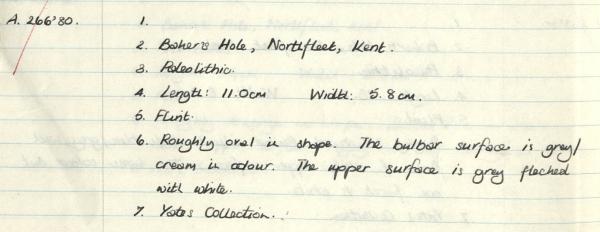 A. 266'80. 1.
2. Baker's Hole, Northfleet, Kent.
3. Paleolithic.
4. Length: 11.0cm Width: 5.8cm.
5. Flint.
6. Roughly oval in shape. The bulbar surface is grey/
cream in colour. The upper surface is grey flecked
with white.
7. Yates Collection.